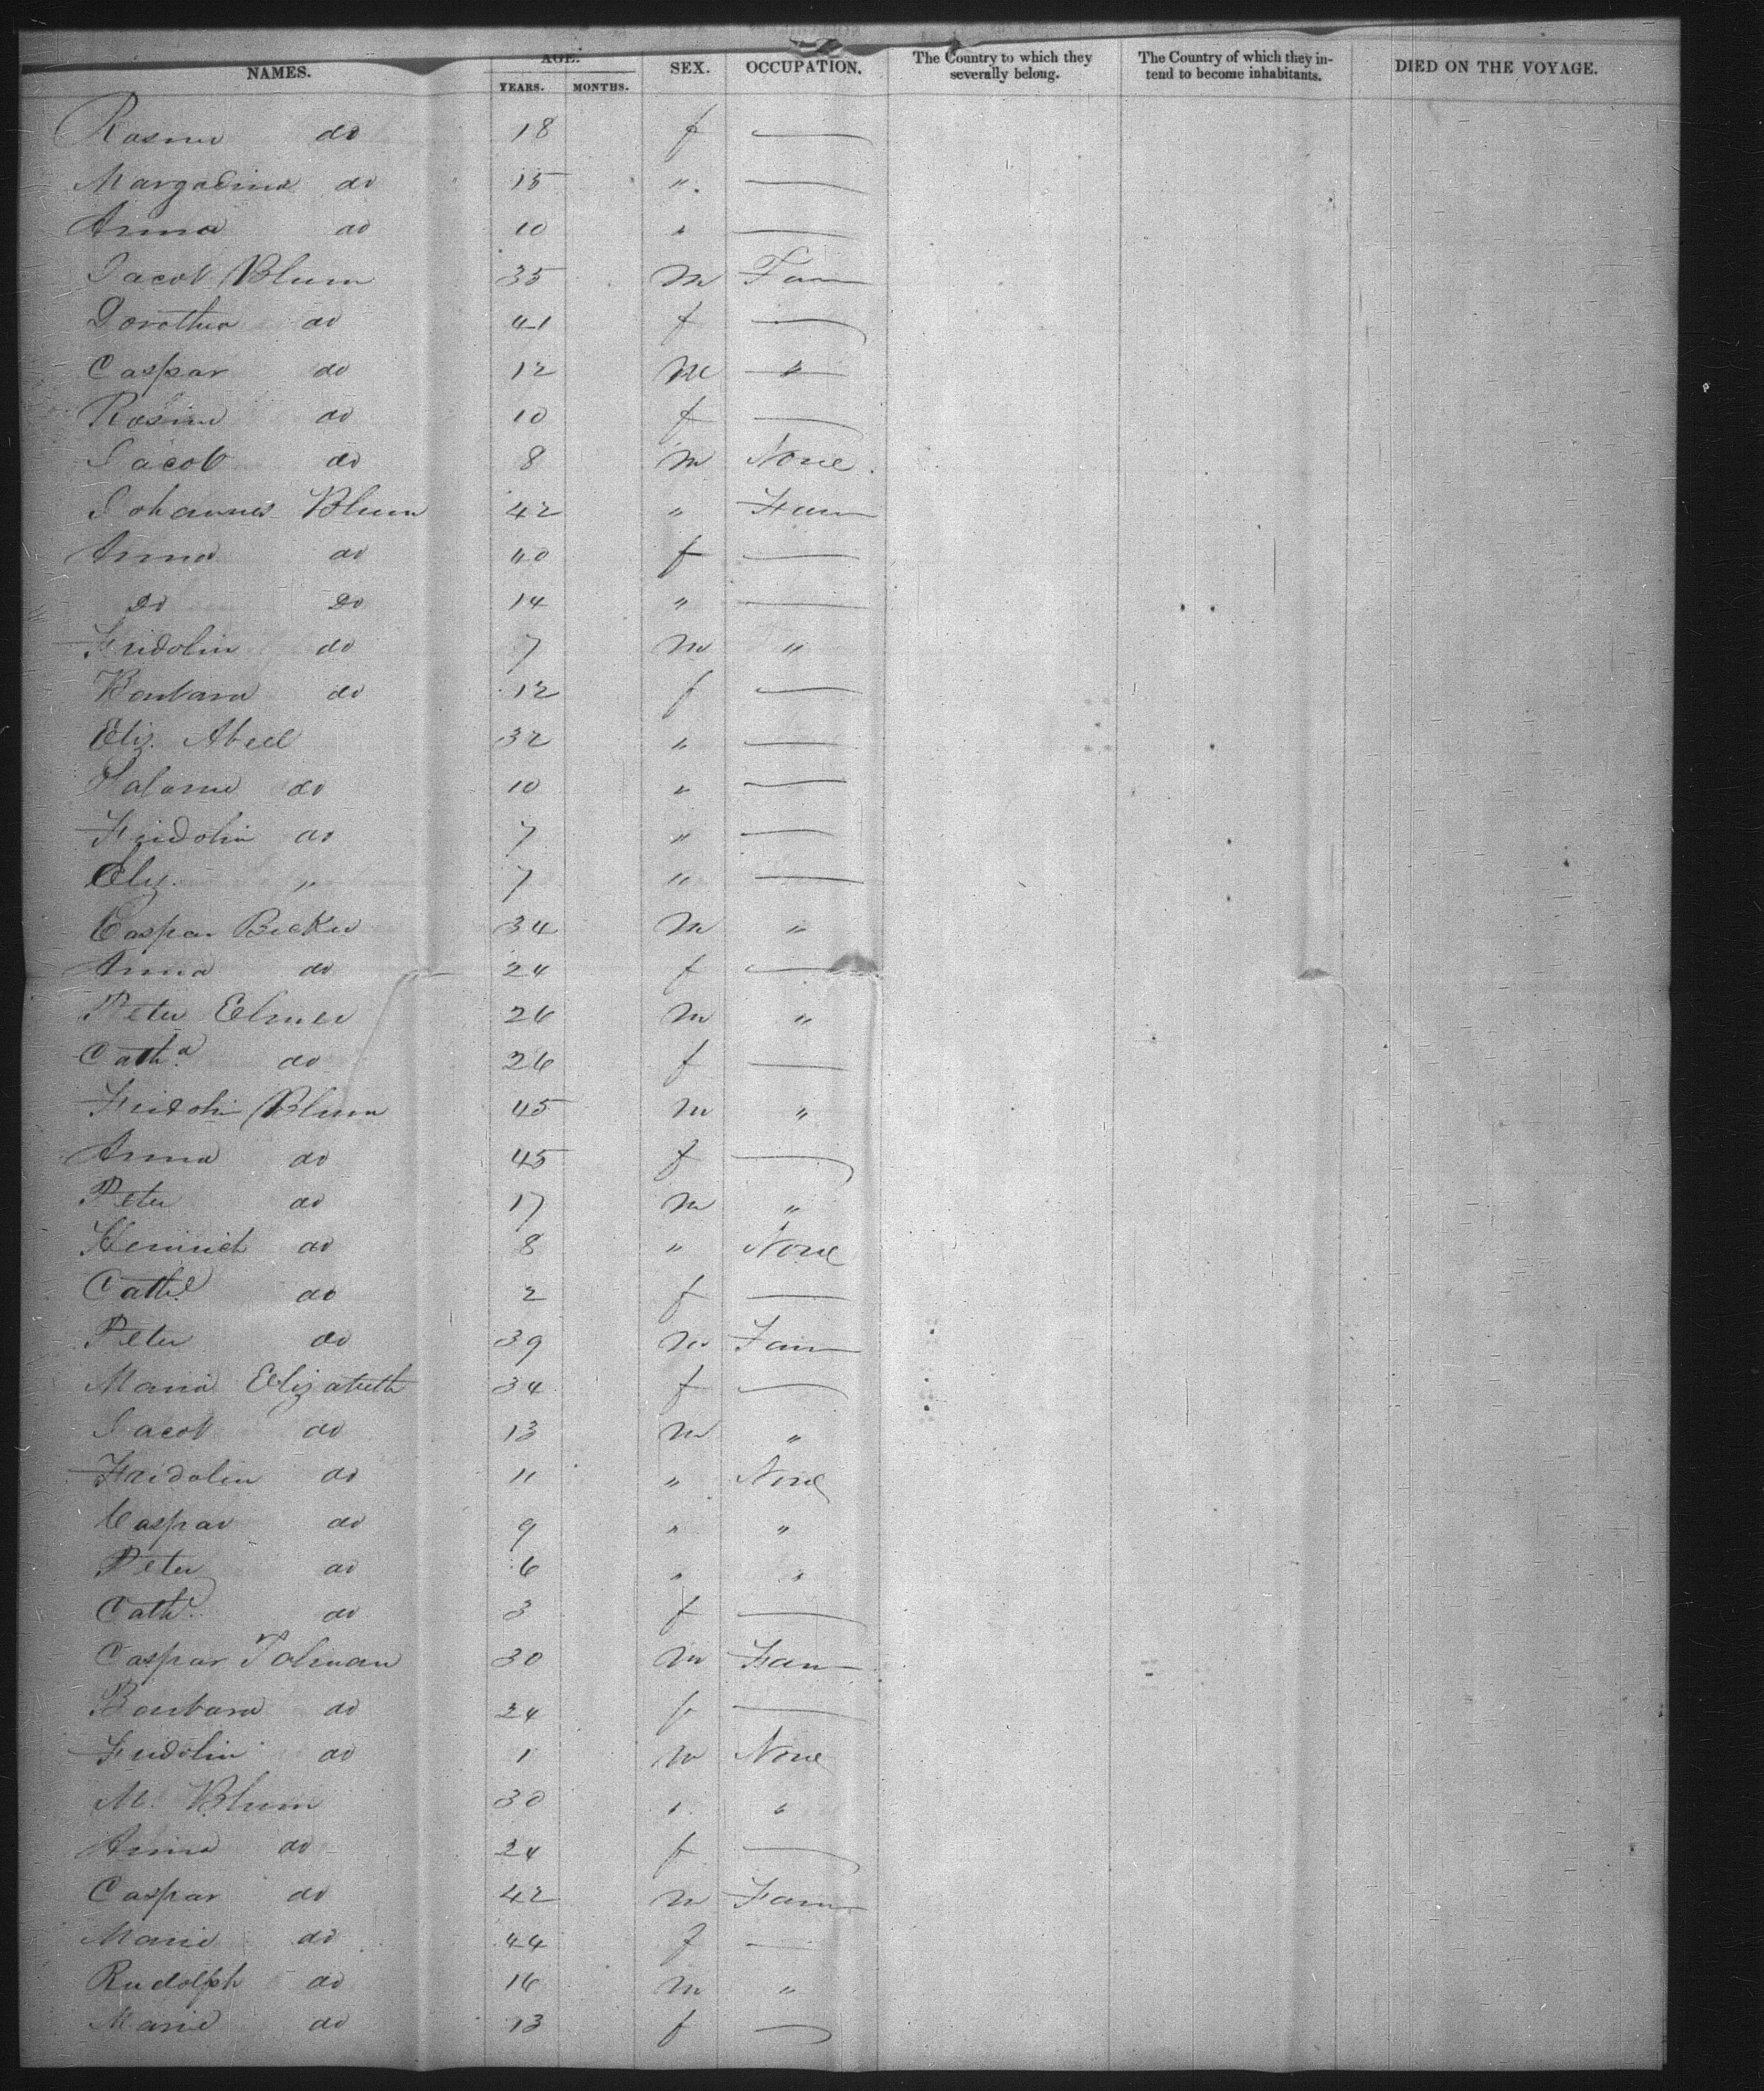 NAMES. AGE. SEX. OCCUPATION. The Country to which they severally belong. The Country of which they intend to become inhabitants. DIED ON THE VOYAGE.
YEARS. MONTHS.
Rosina do 18 f —
Margadina do 15 " —
Anna do 10 " —
Jacob Blum 35 m Farm
Dorothea do 41 f —
Caspar do 12 m "
Rosina do 10 f —
Jacob do 8 m None
Johannes Blum 42 " Farm
Anna do 40 f —
Do Do 14 " —
Fridolin do 7 m "
Barbara do 12 f —
Eliz. Abell 32 " —
Salome do 10 " —
Fridolin do 7 " —
Eliz. " 7 " —
Caspar Becker 34 m "
Anna do 24 f —
Peter Elmer 26 m "
Catha do 26 f —
Fridolin Blum 45 m "
Anna do 45 f —
Peter do 17 m "
Heinrich do 8 " None
Cath. do 2 f —
Peter do 39 m Farm
Maria Elizabeth 34 f —
Jacob do 13 m "
Fridolin do 11 " None
Caspar do 9 " "
Peter do 6 " "
Cath. do 3 f —
Caspar Tolman 30 m Farm
Barbara do 24 f —
Fridolin do 1 m None
M. Blum 30 " "
Anna do 24 f —
Caspar do 42 m Farm
Maria do 44 f —
Rudolph do 16 m "
Maria do 13 f —